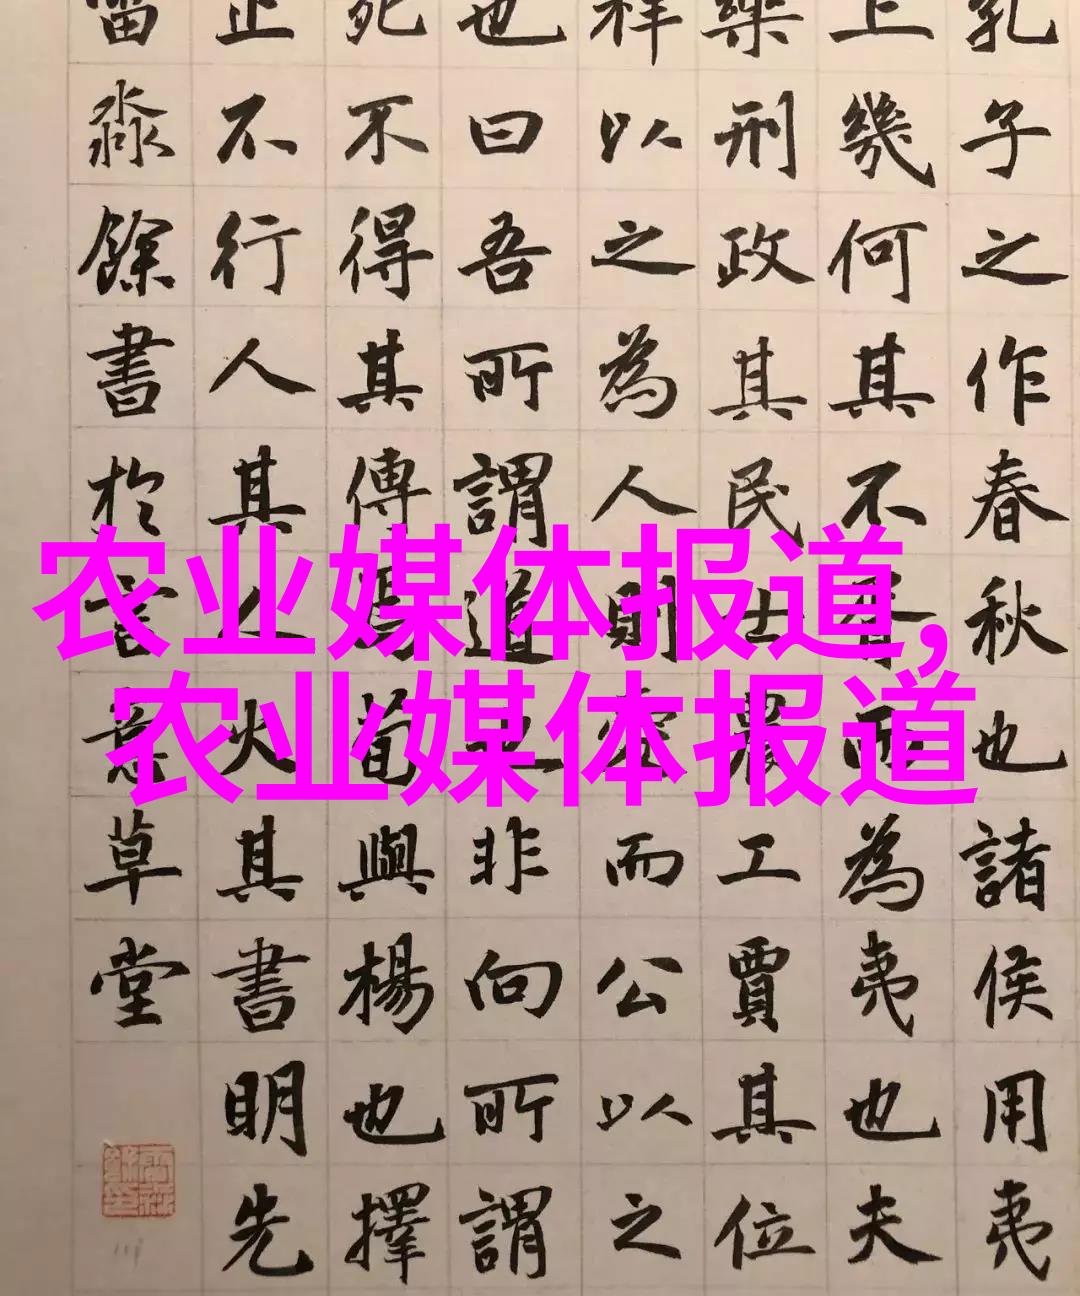 农业媒体报道,
农业媒体报道
孔子之作春秋也諸侯用夷
上幾何其不胥而為夷也夫
樂刑政其民士農工賈其位
祥以之為人則愛而公以之
也曰吾所謂道也非向所謂
死不得其傳焉荀與楊也擇
止不行人其人火其書明先
淼餘書於草堂